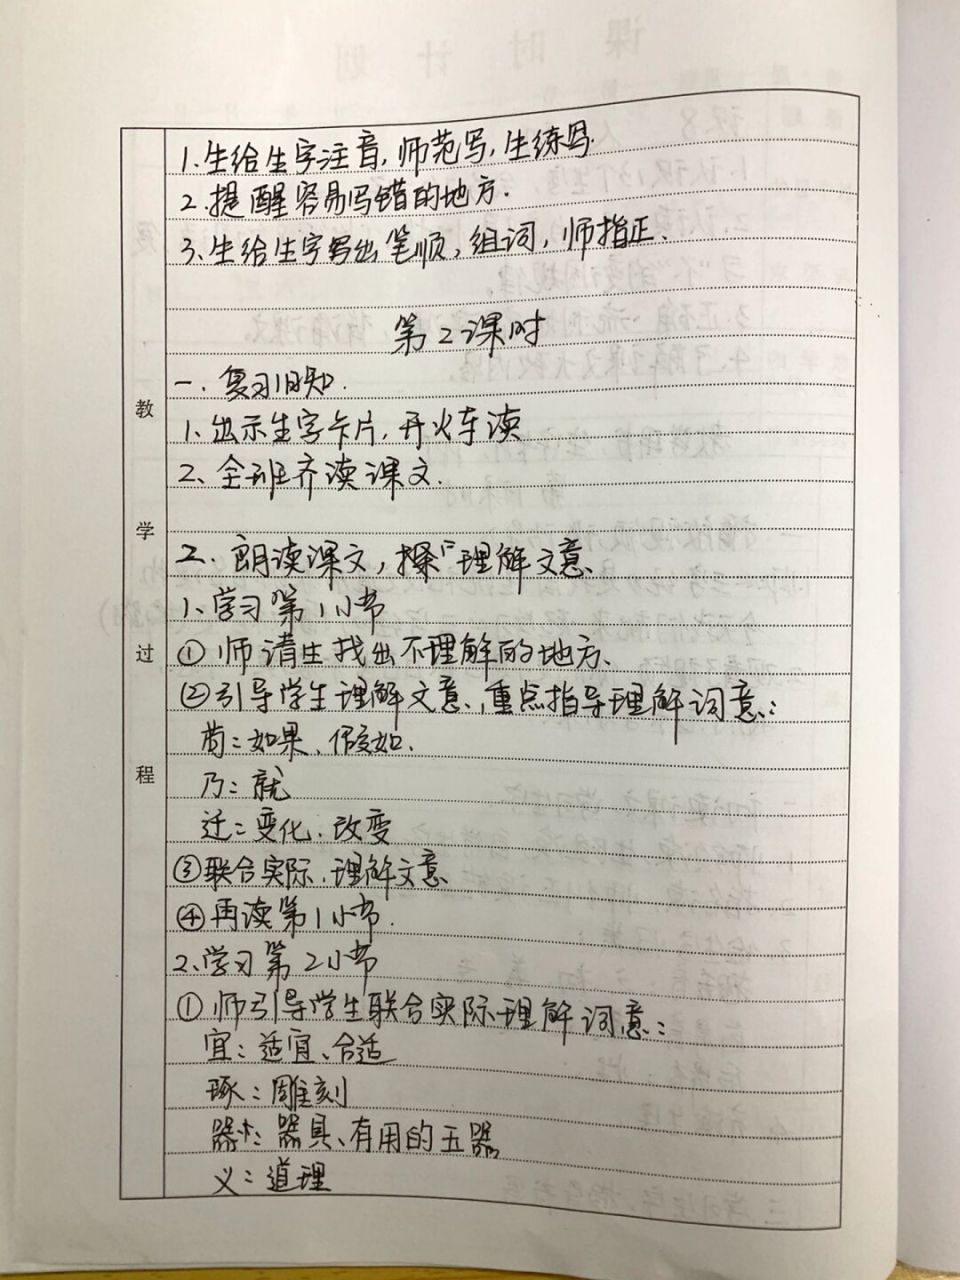 1.生给生字注音,师范写,生练写.
2.提醒容易写错的地方.
3、生给生字写出笔顺,组词,师指正、
第2课时
一.复习旧知.
1、出示生字卡片,开火车读
2、全班齐读课文.
二.朗读课文,探 理解文意、
1、学习第1小节
①师请生找出不理解的地方、
②引导学生理解文意、重点指导理解词意:
苟:如果、假如.
乃:就
迁:变化、改变
③联合实际、理解文意
④再读第1小节.
2、学习第2小节
①师引导学生联合实际理解词意:
宜:适宜、合适
琢:雕刻
器:器具、有用的玉器
义:道理
教
学
过
程